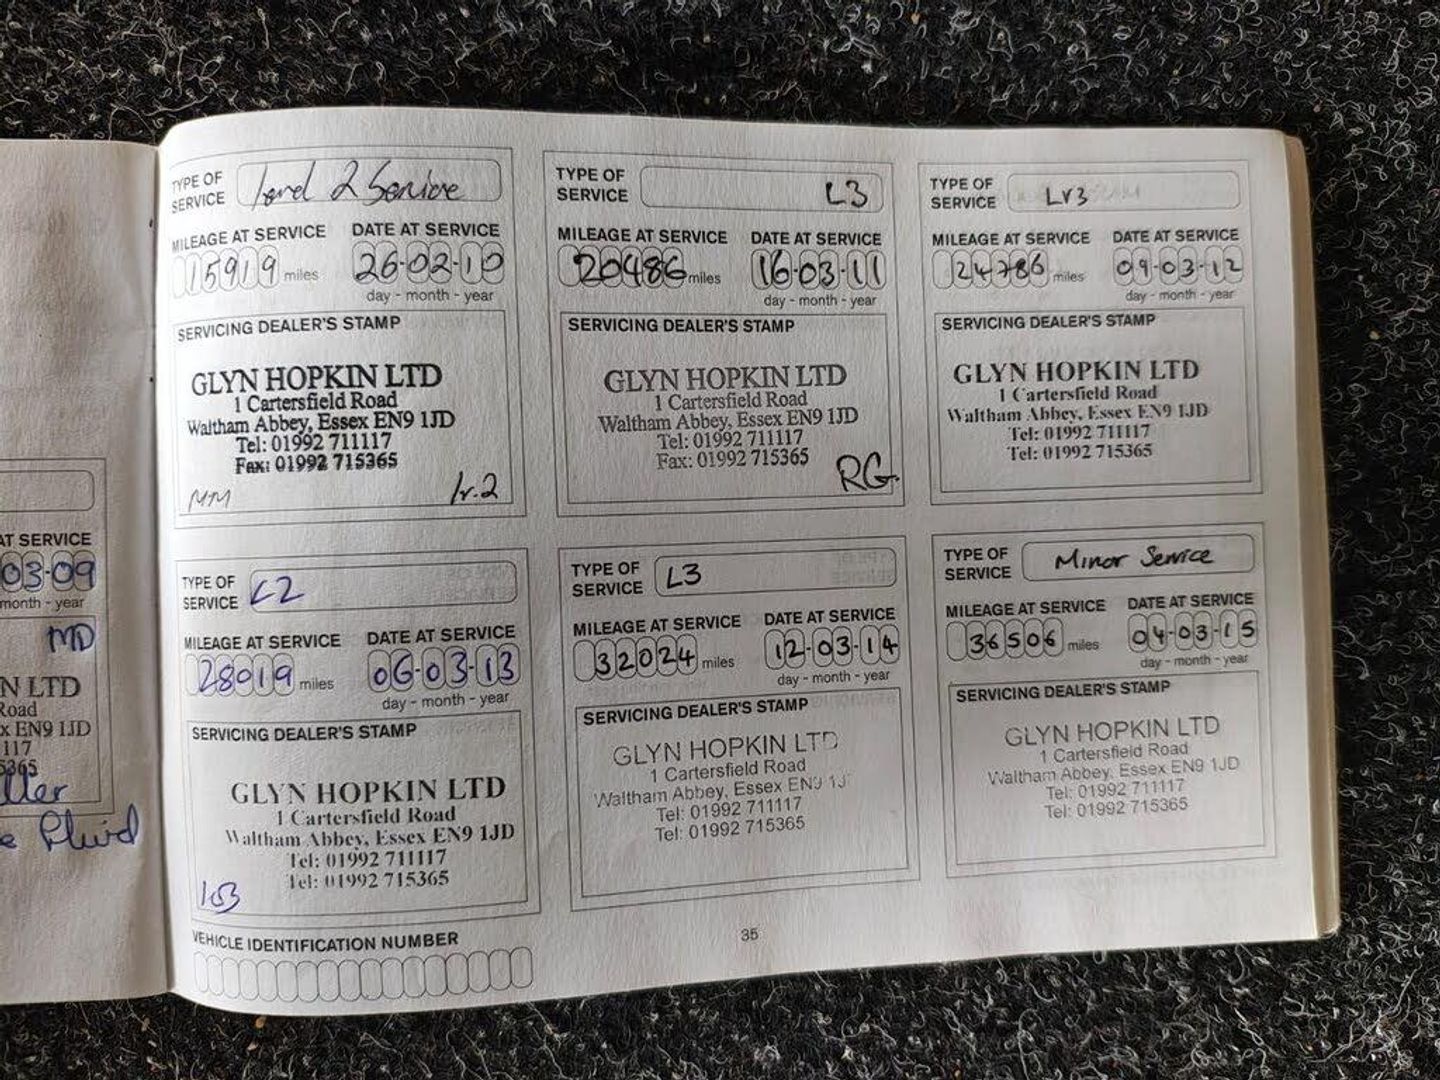 AT SERVICE
03-09
month - year
MD
N LTD
Road
x EN9 1JD
117
5365
e Fluid
TYPE OF SERVICE Level 2 Service
MILEAGE AT SERVICE DATE AT SERVICE
15919 miles 26-02-10
day - month - year
SERVICING DEALER'S STAMP
GLYN HOPKIN LTD
1 Cartersfield Road
Waltham Abbey, Essex EN9 1JD
Tel: 01992 711117
Fax: 01992 715365
MM lv.2
TYPE OF SERVICE L3
MILEAGE AT SERVICE DATE AT SERVICE
20486 miles 16-03-11
day - month - year
SERVICING DEALER'S STAMP
GLYN HOPKIN LTD
1 Cartersfield Road
Waltham Abbey, Essex EN9 1JD
Tel: 01992 711117
Fax: 01992 715365
RG
TYPE OF SERVICE Lv3
MILEAGE AT SERVICE DATE AT SERVICE
24786 miles 09-03-12
day - month - year
SERVICING DEALER'S STAMP
GLYN HOPKIN LTD
1 Cartersfield Road
Waltham Abbey, Essex EN9 1JD
Tel: 01992 711117
Tel: 01992 715365
TYPE OF SERVICE L2
MILEAGE AT SERVICE DATE AT SERVICE
28019 miles 06-03-13
day - month - year
SERVICING DEALER'S STAMP
GLYN HOPKIN LTD
1 Cartersfield Road
Waltham Abbey, Essex EN9 1JD
Tel: 01992 711117
Tel: 01992 715365
TYPE OF SERVICE L3
MILEAGE AT SERVICE DATE AT SERVICE
32024 miles 12-03-14
day - month - year
SERVICING DEALER'S STAMP
GLYN HOPKIN LTD
1 Cartersfield Road
Waltham Abbey, Essex EN9 1J
Tel: 01992 711117
Tel: 01992 715365
TYPE OF SERVICE Minor Service
MILEAGE AT SERVICE DATE AT SERVICE
36506 miles 04-03-15
day - month - year
SERVICING DEALER'S STAMP
GLYN HOPKIN LTD
1 Cartersfield Road
Waltham Abbey, Essex EN9 1JD
Tel: 01992 711117
Tel: 01992 715365
VEHICLE IDENTIFICATION NUMBER
35